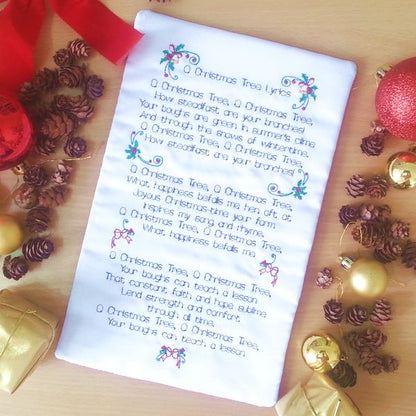 O Christmas Tree Lyrics
O Christmas Tree, O Christmas Tree,
How steadfast are your branches!
Your boughs are green in summer's clime
And through the snows of wintertime.
O Christmas Tree, O Christmas Tree,
How steadfast are your branches!
O Christmas Tree, O Christmas Tree,
What happiness befalls me
when oft at
Joyous Christmas-time your form
inspires my song and rhyme.
O Christmas Tree, O Christmas Tree,
What happiness befalls me
O Christmas Tree, O Christmas Tree,
Your boughs can teach a lesson
That constant faith and hope sublime
Lend strength and comfort
through all time.
O Christmas Tree, O Christmas Tree,
Your boughs can teach a lesson